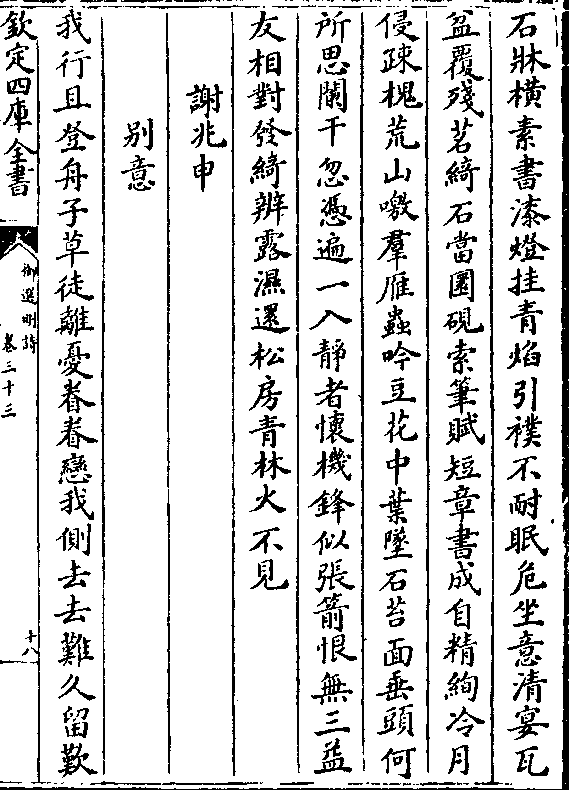 石牀橫素書漆燈挂青焰引襆不耐眠危坐意清宴瓦
盆覆殘茗綺石當圓硯索筆賦短章書成自精絢冷月
侵疎槐荒山噭羣雁蟲吟豆花中葉墜石苔面垂頭何
所思闌干忽憑遍一入靜者懷機鋒似張箭恨無三益
友相對發綺辨露濕還松房青林火不見
謝兆申
別意
我行且登舟子草徒離憂眷眷戀我側去去難久留歎
欽定四庫全書
御選明詩
卷三十三
十八